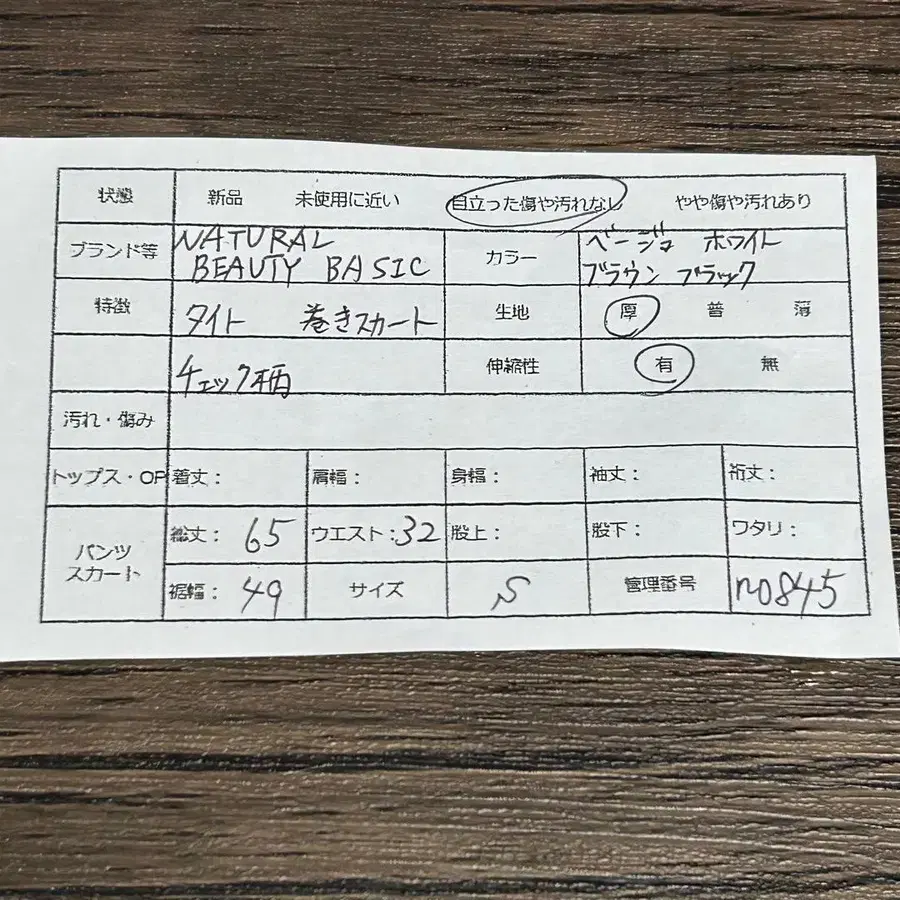 状態 新品 未使用に近い 目立った傷や汚れなし やや傷や汚れあり
ブランド等 NATURAL BEAUTY BASIC カラー ベージュ ホワイト ブラウン ブラック
特徴 タイト 巻きスカート 生地 厚 普 薄
チェック柄 伸縮性 有 無
汚れ・傷み
トップス・OP 着丈： 肩幅： 身幅： 袖丈： 裄丈：
パンツ スカート 総丈：65 ウエスト：32 股上： 股下： ワタリ：
裾幅：49 サイズ S 管理番号 no845